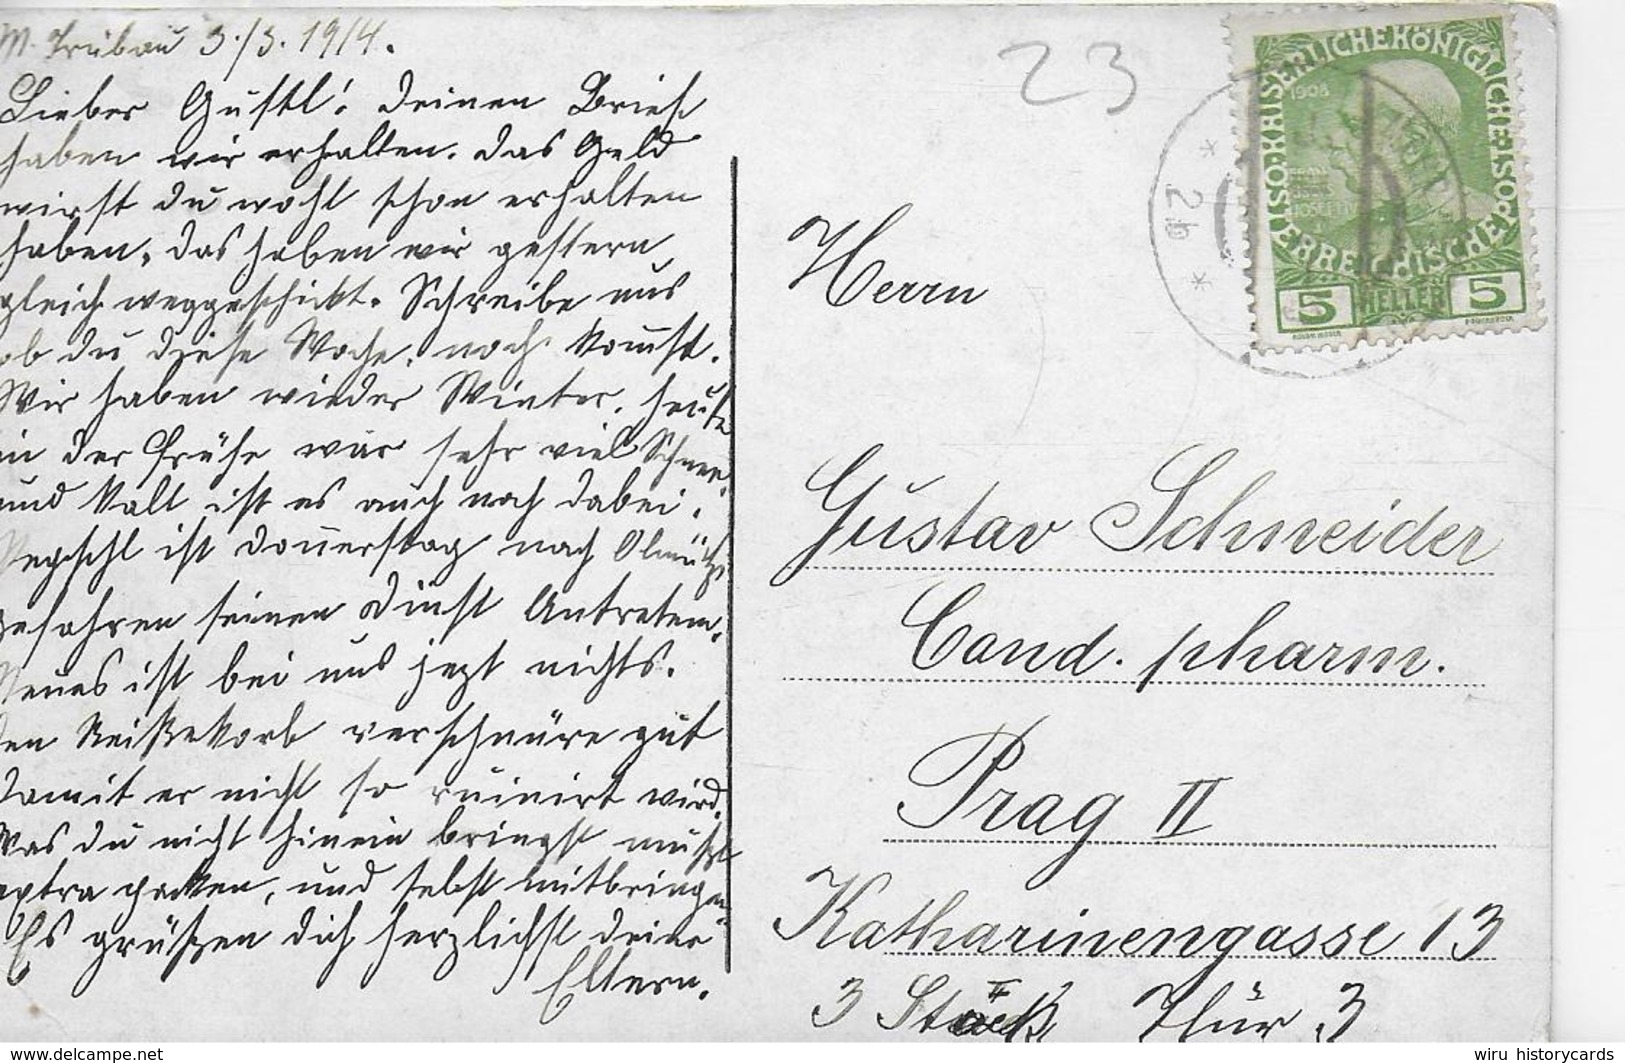 M. Trübau 3./3. 1914.
Lieber Gustl! Deinen Brief
haben wir erhalten. Das Geld
wirst du wohl schon erhalten
haben, das haben wir gestern
gleich weggeschickt. Schreibe uns
ob du diese Woche, noch kom̄st.
Wir haben wieder Winter, heute
in der Frühe war sehr viel Schnee,
und kalt ist es auch noch dabei.
ist Don̄erstag nach Olmütz
gefahren seinen Dinst Antreten.
Neues ist bei uns jezt nichts.
den Reißekorb verschnüre gut
damit er nicht so ruinirt wird.
Was du nicht hinein bringst mußt
extra packen, und selbst mitbringen.
Es grüßen dich herzlichst deine
Eltern.
23
KAISERLICHE KÖNIGLICHE
ÖSTERREICHISCHE POST
1908
5 HELLER 5
* 2b *
Herrn
Gustav Schneider
Cand. pharm.
Prag II
Katharinengasse 13
3 Stock II Thür 3
wiru historycards